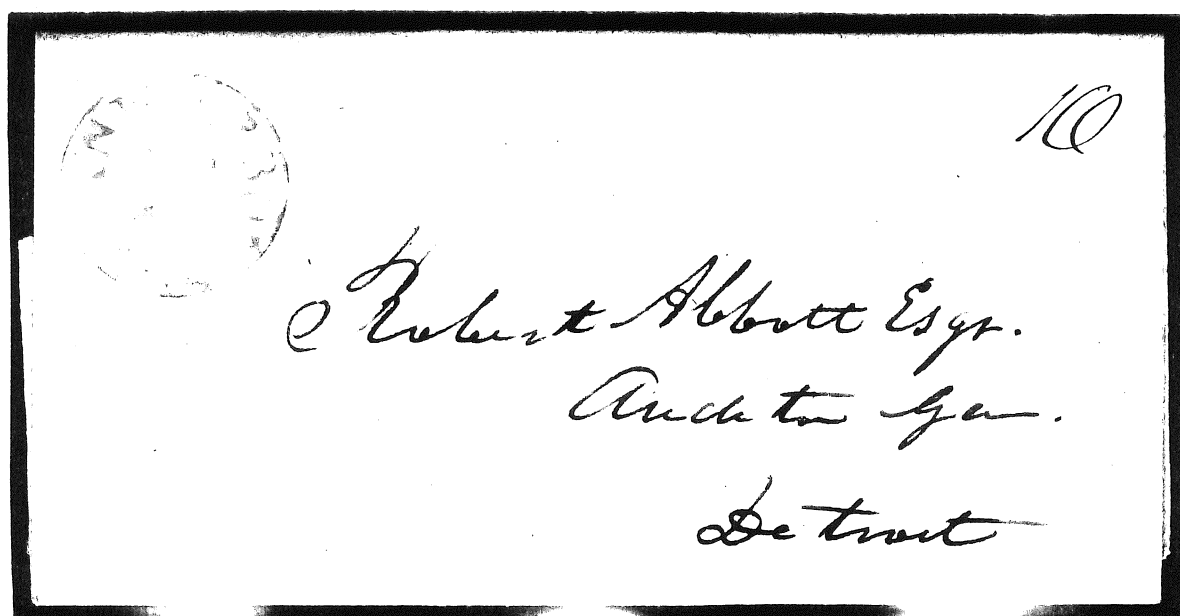 10
Robert Abbott Esqr.
Auditor Gen.
Detroit